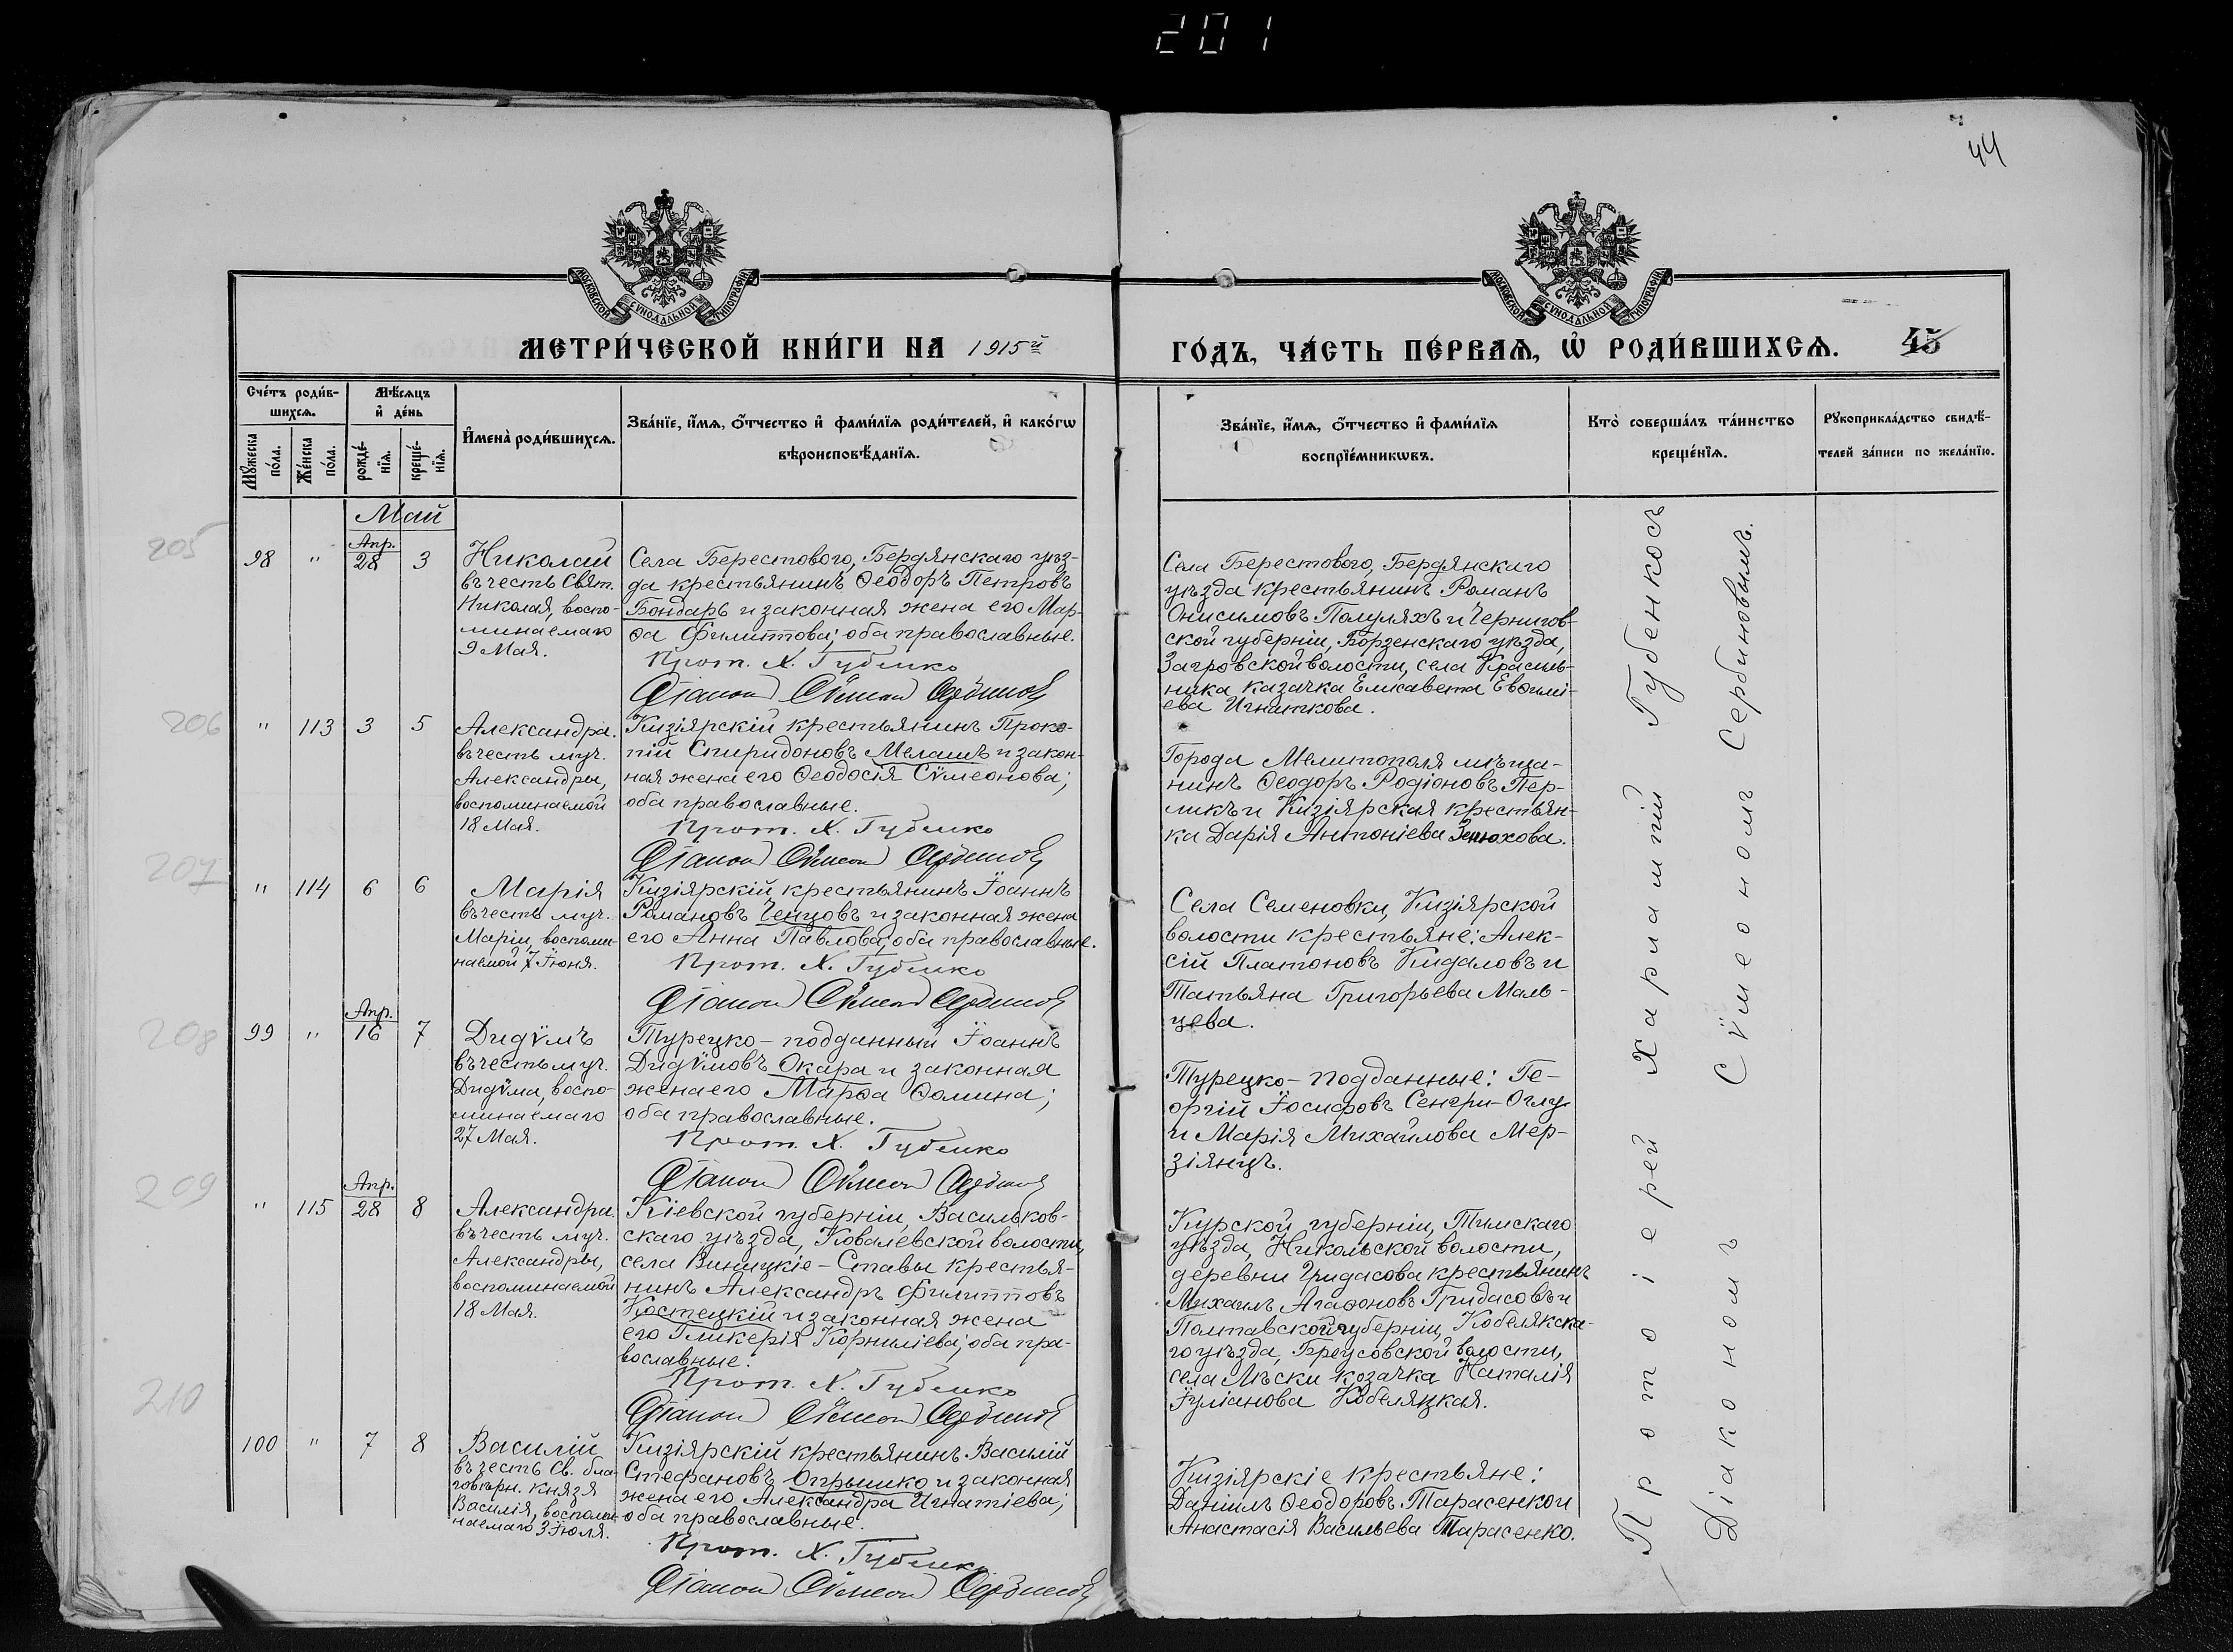 201
44
МОСКОВСКОЙ СѴНОДАЛЬНОЙ ТИПОГРАФІИ
МОСКОВСКОЙ СѴНОДАЛЬНОЙ ТИПОГРАФІИ
МЕТРИ́ЧЕСКОЙ КНИ́ГИ НА 1915й
ГО́ДЪ, ЧА́СТЬ ПЕ́РВАѦ, Ѽ РОДИ́ВШИХСѦ. 45
Сче́тъ роди́в-
шихсѧ.
Мꙋ́жеска
по́ла.
Же́нска
по́ла.
Мѣ́сѧцъ
и҆ де́нь
рожде́-
нїѧ.
креще́-
нїѧ.
И҆мена̀ роди́вшихсѧ.
Зва́нїе, и҆́мѧ, ѻ҆́тчество и҆ фами́лїѧ роди́телей, и҆ како́гѡ
вѣроисповѣ́данїѧ.
Зва́нїе, и҆́мѧ, ѻ҆́тчество и҆ фами́лїѧ
воспрїе́мникѡвъ.
Кто̀ соверша́лъ та́инство
креще́нїѧ.
Рꙋкоприкла́дство свидѣ́-
телей за́писи по жела́нїю.
Май
205
98 " Апр. 28 3
Николай
въ честь Свят.
Николая, воспо-
минаемаго
9 Мая.
Села Берестового, Бердянскаго уѣз-
да крестьянинъ Ѳеодоръ Петровъ
Бондарь и законная жена его Мар-
ѳа Филиппова; оба православные.
Прот. Х. Губенко
Діаконъ Сѵмеонъ Сербиновъ
Села Берестового, Бердянскаго
уѣзда крестьянинъ Романъ
Онисимовъ Полуляхъ и Чернигов-
ской губерніи, Борзенскаго уѣзда,
села Красиль-
ника казачка Елисавета Евѳимі-
ева Игнаткова.
206
" 113 3 5
Александра.
въ честь муч.
Александры,
воспоминаемой
18 Мая.
Кизіярскій крестьянинъ Проко-
пій Спиридоновъ Мелашъ и закон-
ная жена его Ѳеодосія Сѵмеонова;
оба православные.
Прот. Х. Губенко
Діаконъ Сѵмеонъ Сербиновъ
Города Мелитополя мѣща-
нинъ Ѳеодоръ Родіоновъ Пер-
ликъ и Кизіярская крестьян-
ка Дарія Антоніева
207
" 114 6 6
Марія
въ честь муч.
Маріи, воспоми-
наемой 7 Іюня.
Кизіярскій крестьянинъ Іоаннъ
Романовъ Ченцовъ и законная жена
его Анна Павлова; оба православные.
Прот. Х. Губенко
Діаконъ Сѵмеонъ Сербиновъ
Села Семеновки, Кизіярской
волости крестьяне: Алек-
сій Платоновъ Кидаловъ и
Татьяна Григорьева Маль-
цева.
208
99 " Апр. 16 7
Дидѵмъ
въ честь муч.
Дидѵма, воспо-
минаемаго
27 Мая.
Турецко-подданный Іоаннъ
Дидѵмовъ Окара и законная
жена его Марѳа Ѳомина;
оба православные.
Прот. Х. Губенко
Діаконъ Сѵмеонъ Сербиновъ
Турецко-подданные: Ге-
оргій Іосифовъ Сенгри-Оглу
и Марія Михайлова Мер-
зіянцъ.
209
" 115 Апр. 28 8
Александра.
въ честь муч.
Александры,
воспоминаемой
18 Мая.
Кіевской губерніи, Васильков-
скаго уѣзда, Ковалевской волости,
села Виницкіе-Ставы крестья-
нинъ Александръ Филипповъ
Костецкій и законная жена
его Гликерія Корниліева; оба пра-
вославные.
Прот. Х. Губенко
Діаконъ Сѵмеонъ Сербиновъ
Курской губерніи, Тимскаго
уѣзда, Никольской волости,
деревни Гридасова крестьянинъ
Михаилъ Агаѳоновъ Гридасовъ и
Полтавской губерніи, Кобелякска-
го уѣзда, Бреусовской волости,
села Лѣски козачка Наталія
Іуліанова Кобеляцкая.
210
100 " 7 8
Василій
въ честь Св. бла-
говѣрн. князя
Василія, воспоми-
наемаго 3 Іюля.
Кизіярскій крестьянинъ Василій
Стефановъ Опрышко и законная
жена его Александра Игнатіева;
оба православные.
Прот. Х. Губенко
Діаконъ Сѵмеонъ Сербиновъ
Кизіярскіе крестьяне:
Даніилъ Ѳеодоровъ Тарасенко и
Анастасія Васильева Тарасенко.
Протоіерей Харлампій Губенко съ
Діакономъ Сѵмеономъ Сербиновымъ.